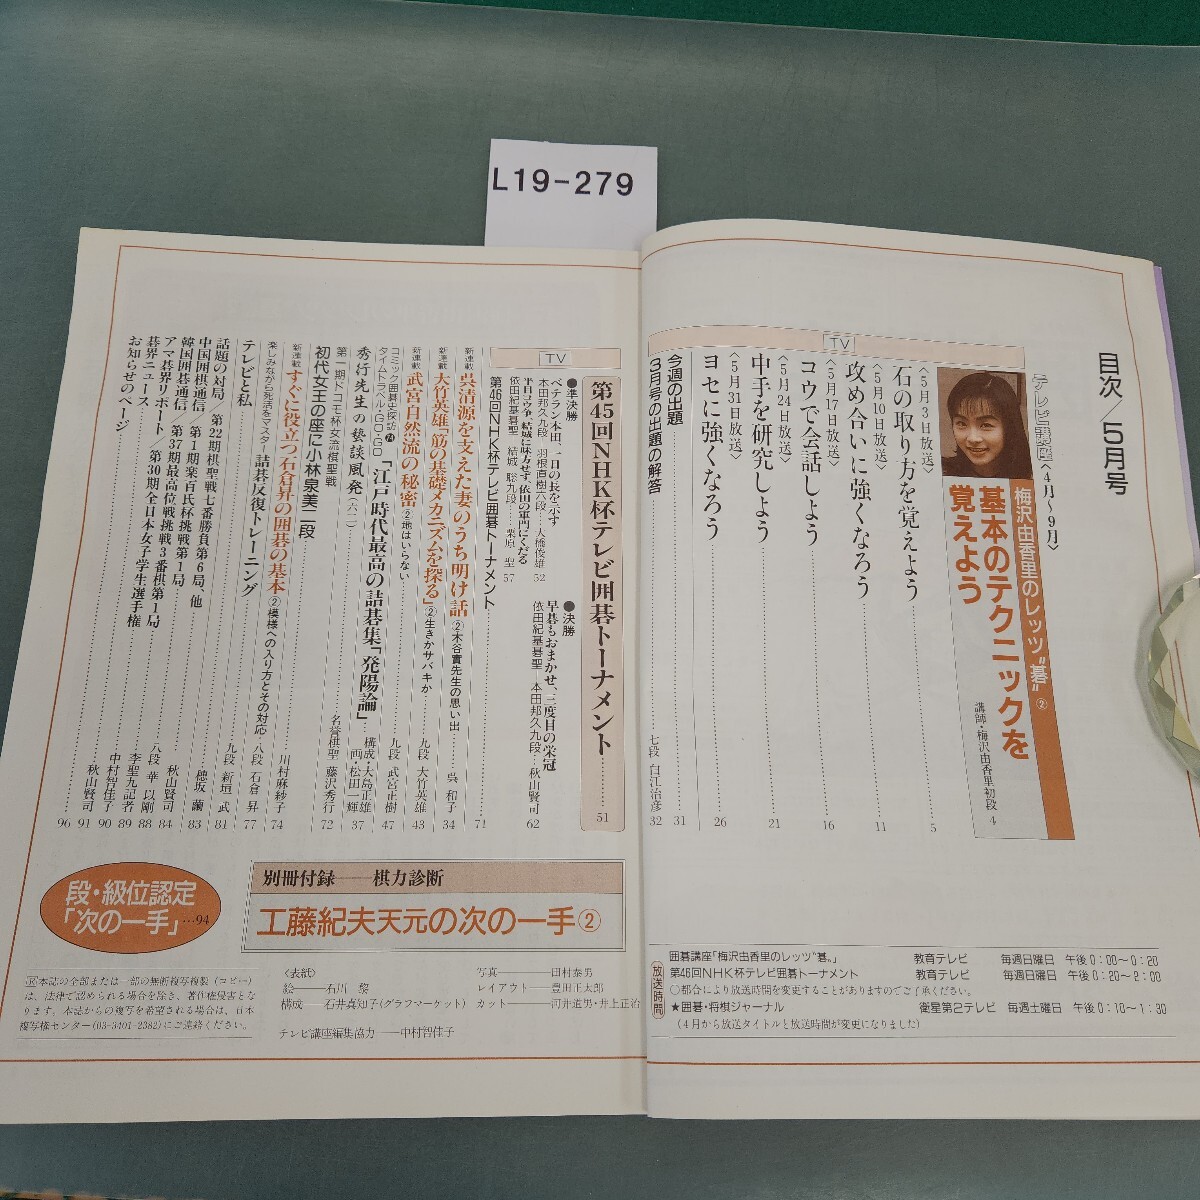 L19-279
目次／5月号
テレビ講座〈4月〜9月〉
梅沢由香里のレッツ“碁”②
基本のテクニックを
覚えよう
講師・梅沢由香里初段 4
TV
〈5月3日放送〉
石の取り方を覚えよう 5
〈5月10日放送〉
攻め合いに強くなろう 11
〈5月17日放送〉
コウで会話しよう 16
〈5月24日放送〉
中手を研究しよう 21
〈5月31日放送〉
ヨセに強くなろう 26
今週の出題 31
3月号の出題の解答 七段 白江治彦 32
囲碁講座「梅沢由香里のレッツ“碁”」 教育テレビ 毎週日曜日 午後0：00〜0：20
放送時間
第46回NHK杯テレビ囲碁トーナメント 教育テレビ 毎週日曜日 午後0：20〜2：00
○都合により放送時間を変更することがありますのでご了承ください。
★囲碁・将棋ジャーナル 衛星第2テレビ 毎週土曜日 午後0：10〜1：30
（4月から放送タイトルと放送時間が変更になりました）
TV
第45回NHK杯テレビ囲碁トーナメント 51
●準決勝
ベテラン本田、一日の長を示す
本田邦久九段 羽根直樹六段 大橋俊雄 52
半目コウ争、結城に味方せず、依田の軍門にくだる
依田紀基碁聖 結城 聡九段 栗原 聖 57
●決勝
早碁もおまかせ、三度目の栄冠
依田紀基碁聖 本田邦久九段 秋山賢司 62
第46回NHK杯テレビ囲碁トーナメント 71
新連載 呉清源を支えた妻のうち明け話②木谷實先生の思い出 呉 和子 34
新連載 大竹英雄「筋の基礎メカニズムを探る」②生きかサバキか 九段 大竹英雄 43
新連載 武宮自然流の秘密②地はいらない 九段 武宮正樹 47
コミック囲碁史探訪
タイムトラベル・GO・GO 74 「江戸時代最高の詰碁集「発陽論」 構成・大島正雄 画・松田一輝 37
秀行先生の藝談風発(六二) 名誉棋聖 藤沢秀行 72
第一期ドコモ杯女流棋聖戦
初代女王の座に小林泉美二段 川村麻紗子 74
新連載 すぐに役立つ石倉昇の囲碁の基本②模様への入り方とその対応 八段 石倉 昇 77
楽しみながら死活をマスター 詰碁反復トレーニング 九段 新垣 武 81
テレビと私 穂坂 繭 83
話題の対局／第22期棋聖戦七番勝負第6局、他 秋山賢司 84
中国囲棋通信／第1期楽百氏杯挑戦第1局 八段 華 以剛 88
韓国囲碁通信／第37期最高位戦挑戦3番棋第1局 李聖九記者 89
アマ碁界リポート／第30期全日本女子学生選手権 中村智佳子 90
碁界ニュース 秋山賢司 91
お知らせのページ 96
段・級位認定
「次の一手」…94
別冊付録――棋力診断
工藤紀夫天元の次の一手②
Ⓡ本誌の全部または一部の無断複写複製（コピー）
は、法律で認められる場合を除き、著作権侵害とな
ります。本誌からの複写を希望される場合は、日本
複写権センター(03-3401-2382)にご連絡ください。
〈表紙〉
絵――石川 黎
構成――石井真知子(グラフマーケット)
テレビ講座編集協力――中村智佳子
写真――田村泰男
レイアウト――豊田正太郎
カット――河井道男・井上正治